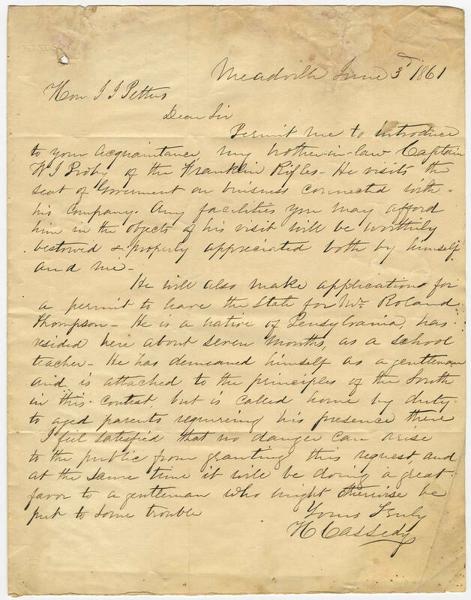 Meadville June 3d 1861
Hon J J Pettus
Dear Sir
Permit me to introduce
to your acquaintance my brother-in-law Captain
K J Proby of the Franklin Rifles - He visits the
seat of Government on business connected with
his Company. Any facilities you may afford
him in the objects of his visit will be worthily
bestowed & properly appreciated both by himself
and me -
He will also make application for
a permit to leave the State for Mr Roland
Thompson - He is a native of Pensylvania, has
resided here about seven months, as a school
teacher - He has demeaned himself as a gentleman
and is attached to the principles of the South
in this contest but is called home by duty
to aged parents requiring his presence there
I feel satisfied that no danger can arise
to the public from granting this request and
at the same time it will be doing a great
favor to a gentleman who might otherwise be
put to some trouble
Yours Truly
H Cassedy